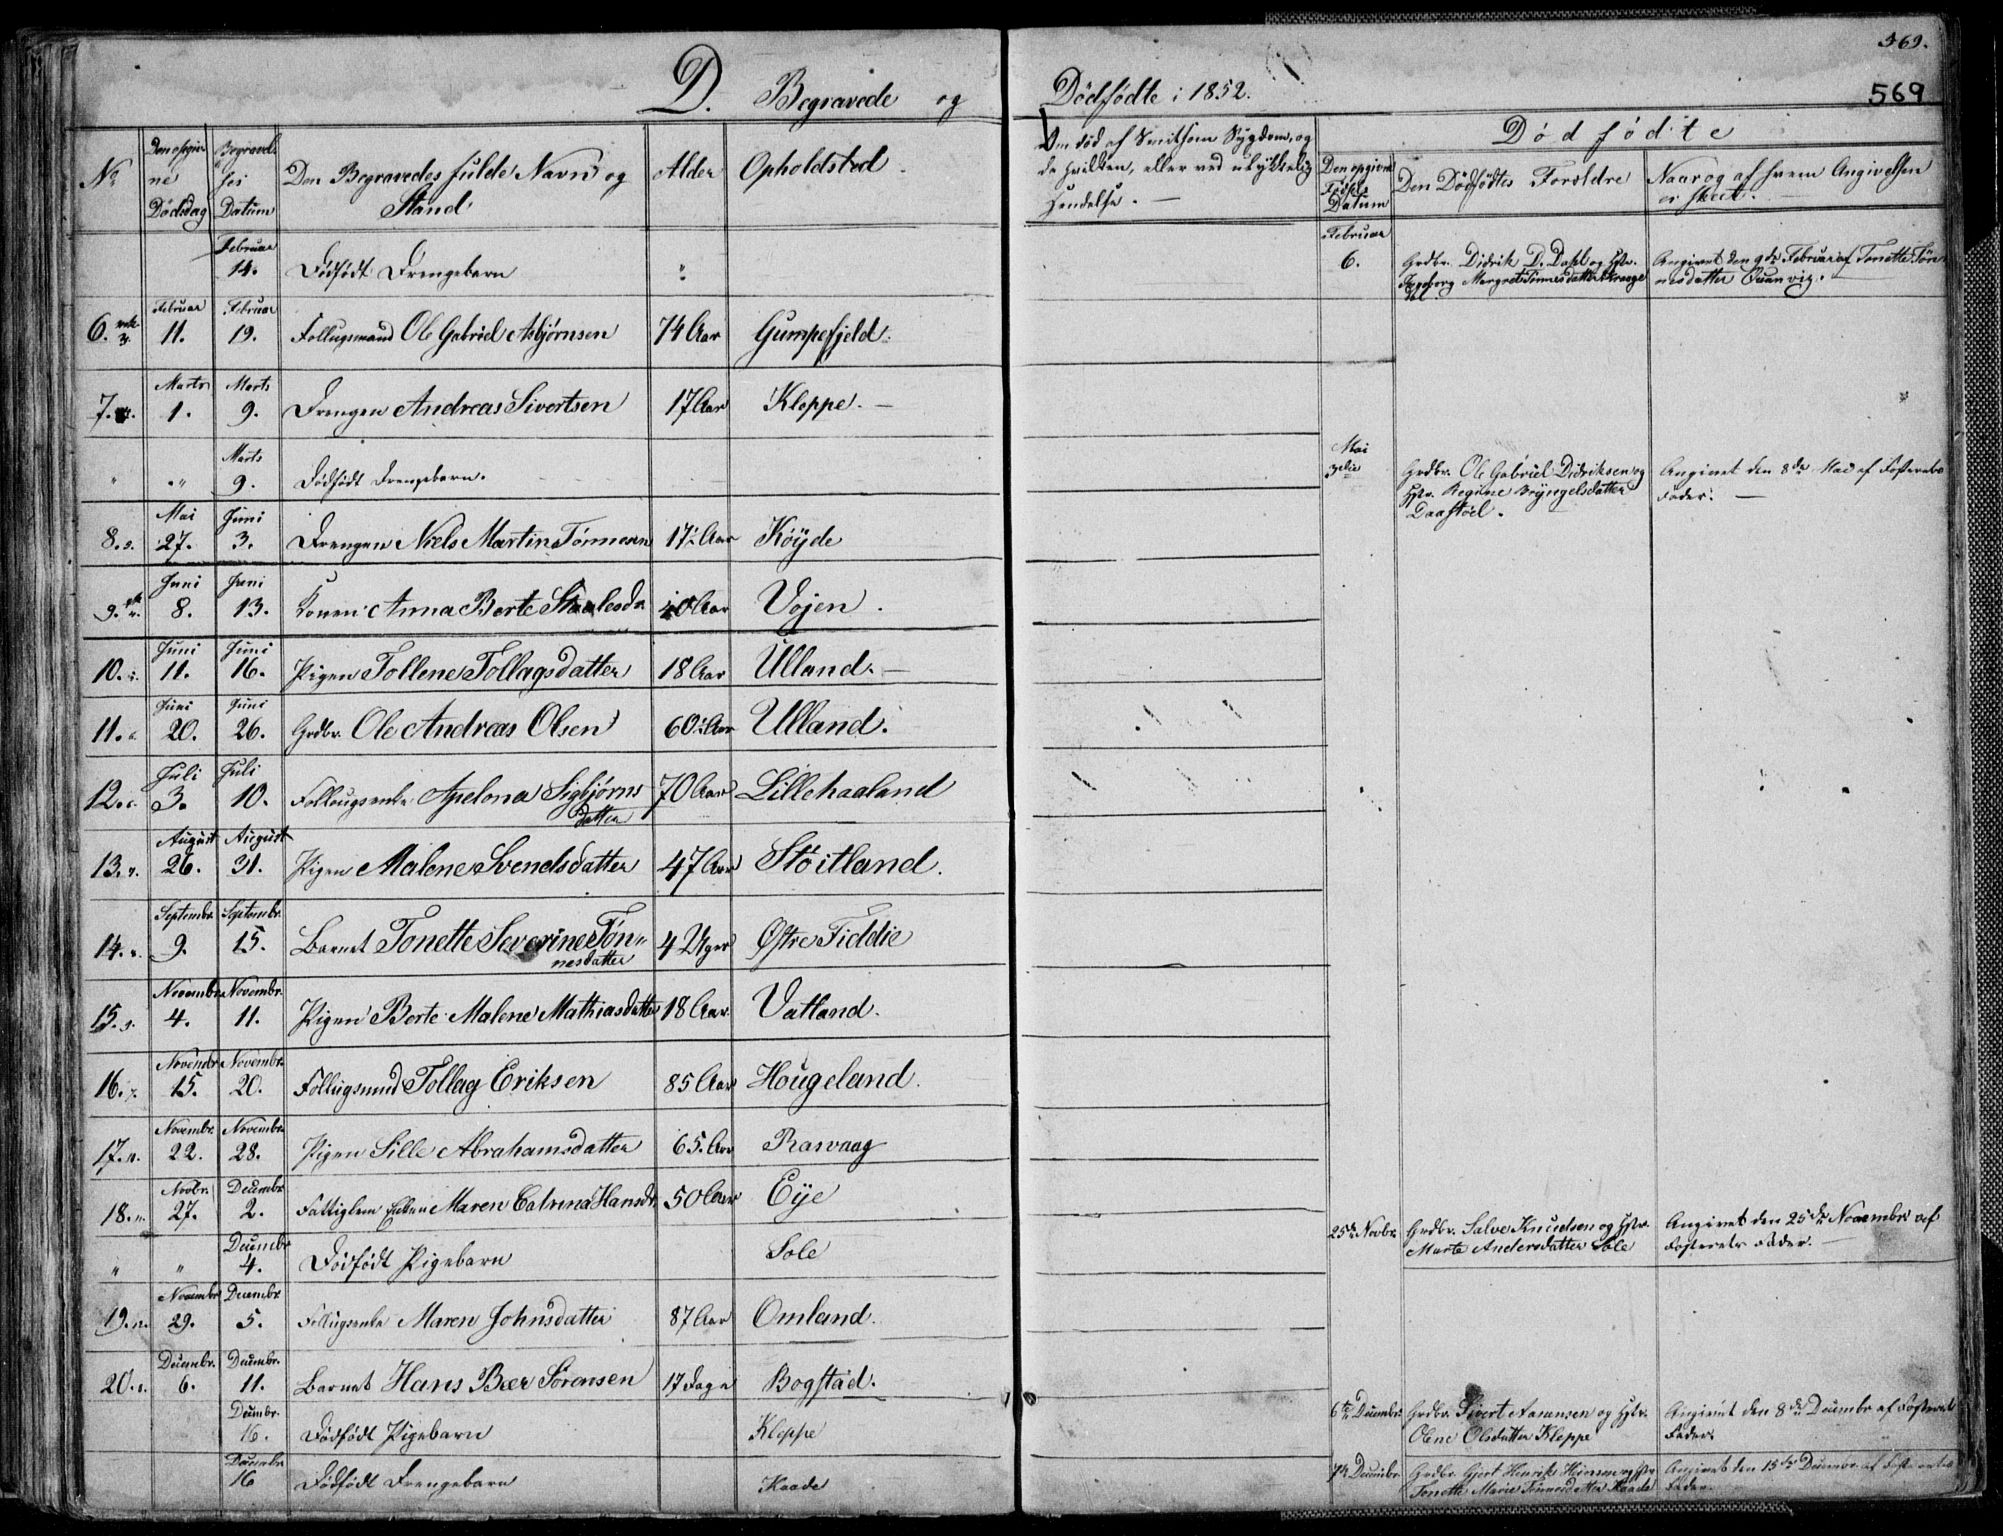 369.
569
D. Begravede og Dödfødte i 1852.
No
Den opgivne Dödsdag
Begravelses Datum
Den Begravedes fulde Navn og Stand
Alder
Opholdsted
Om död af Smitsom Sygdom, og
de hvilken, eller ved ulykkelig
Hendelse.
Dødfödte
Den opgivne Fødsels Datum
Den Dödfödtes Forældre
Naar og af hvem Angivelsen er skeet.
Februar 14. Dödfödt Drengebarn "
Februar 6. Grdbr. Didrik D. Dahl og Hstr. Ingeborg Margrete Tönnesdatter
Angivet den 9de Februar af Tonette Tönnesdatter Quanvig.
6. Februar 11. Februar 19. Follugsmand Ole Gabriel Asbjørnsen 74 Aar Gumpefjeld.
7. Marts 1. Marts 9. Drengen Andreas Sivertsen 17 Aar Kleppe. —
" " Marts 9. Dödfödt Drengebarn.
Mai 3die Grdbr. Ole Gabriel Didriksen og Hstr. Regine Bryngelsdatter Daastöel.
Angivet den 8de Mai af Fosterets Fader. —
8. Mai 27. Juni 3. Drengen Niels Martin Tönnesen 17½ Aar Köÿde
9. Juni 8. Juni 13. Konen Anna Berte Staalesdr. 40 Aar Vojen.
10. Juni 11. Juni 16. Pigen Tollene Tollagsdatter 18 Aar Ulland. —
11. Juni 20. Juni 26. Grdbr. Ole Andreas Olsen 60½ Aar Ulland.
12. Juli 3. Juli 10. Follougsenke Apelona Sigbjørns
datter 70 Aar Lillehaaland
13. August 26. August 31. Pigen Malene Svendsdatter 47 Aar Stöitland.
14. Septembr. 9. Septembr. 15. Barnet Tonette Severine Tön-
nesdatter 4 Uger Østre Fiddie
15. Novembr. 4. Novembr. 11. Pigen Berte Malene Mathiasdatter 18 Aar Vatland.
16. Novembr. 15. Novembr. 20. Follugsmand Tollag Eriksen 85 Aar Hougeland.
17. Novembr. 22. Novembr. 28. Pigen Sille Abrahamsdatter 65. Aar Rasvaag
18. Novbr. 27. Decembr. 2. Fattiglem Enken Maren Catrina Hansdr. 50 Aar Eÿe
" " Decembr. 4. Dödfödt Pigebarn Sole
25de Novbr. Grdbr. Salve Knudsen og Hstr. Marte Andersdatter Sole
Angivet den 25de Novembr. af Fosterets Fader. —
19. Novembr. 29. Decembr. 5. Follugsenke Maren Johnsdatter 87 Aar Omland.
20. Decembr. 6. Decembr. 11. Barnet Hans Bær Sörensen 17 Dage Bogstad.
Decembr. 16. Dödfödt Pigebarn Kleppe
6te Decembr. Grdbr. Sivert Aanensen og Hstr. Olene Olsdatter Kleppe
Angivet den 8de Decembr. af Fosterets Fader.
Decembr. 16 Dödfödt Drengebarn Kaade
7de Decembr. Grdbr. Gjert Henrik Heinsen og Hstr. Tonette Marie Tönnesdatter Kaade
Angivet den 15de Decembr. af Fosterets Fader.